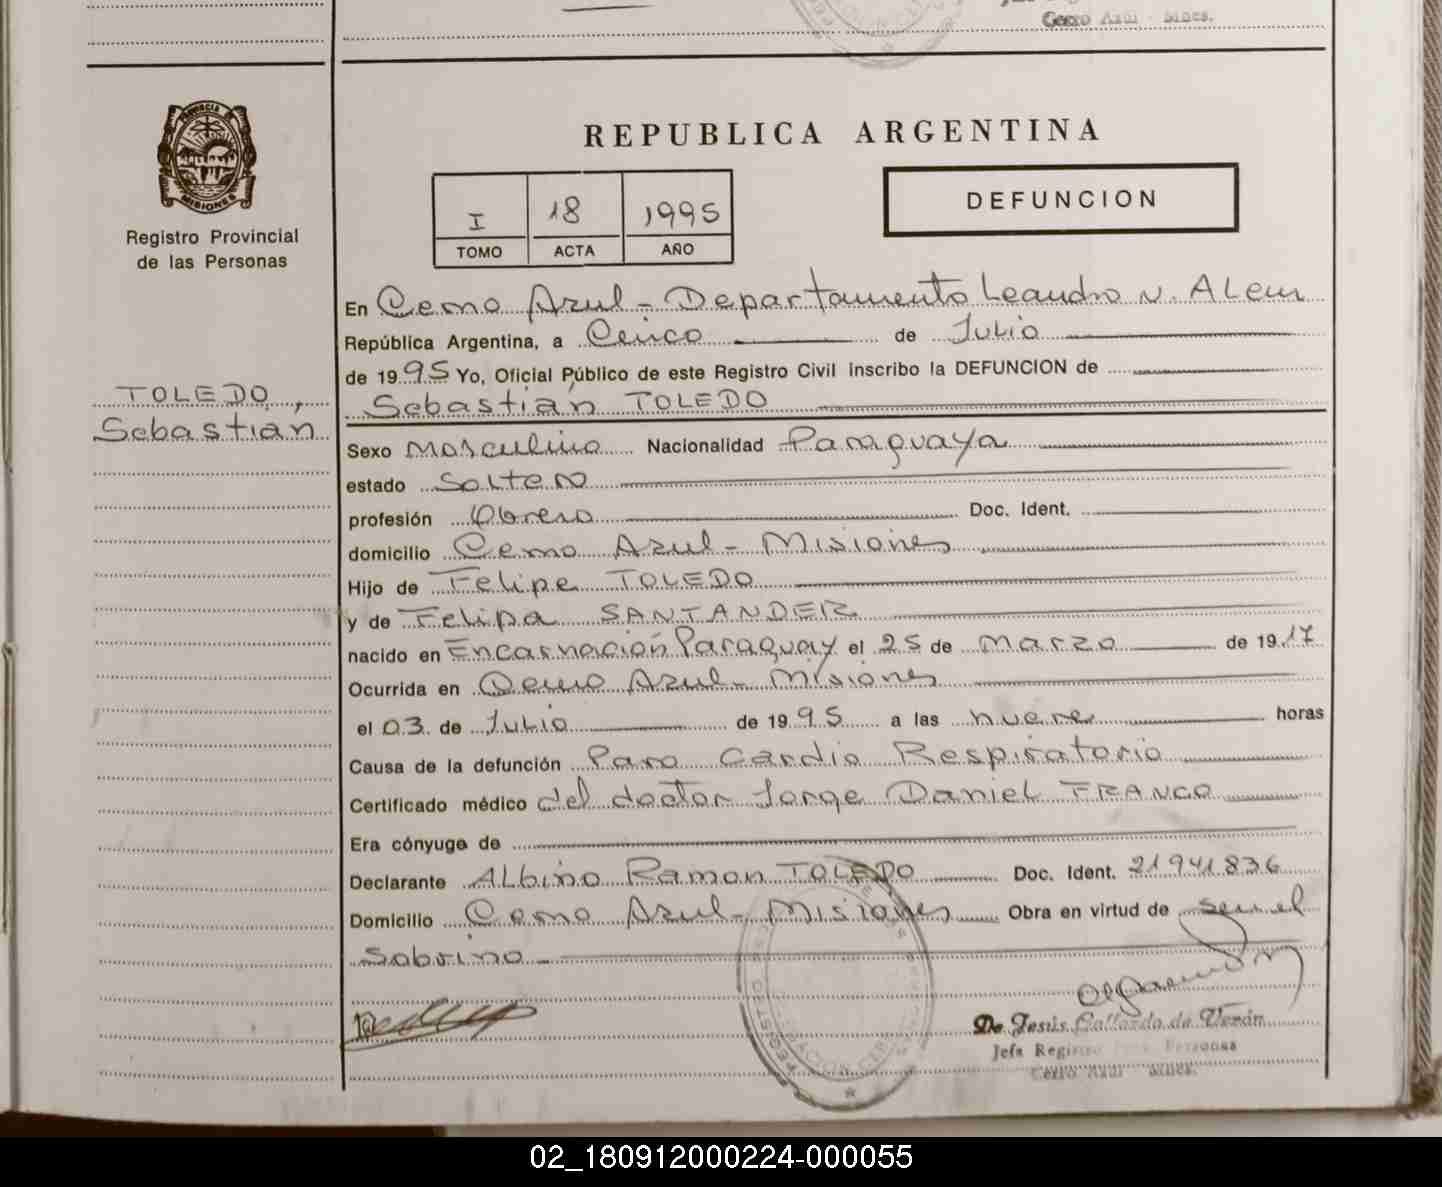 Cerro Azul - Mnes.
PROVINCIA DE MISIONES
Registro Provincial
de las Personas
TOLEDO,
Sebastián
REPUBLICA ARGENTINA
I 18 1995
TOMO ACTA AÑO
DEFUNCION
En Cerro Azul - Departamento Leandro N. ALem
República Argentina, a Cinco de Julio
de 1995 Yo, Oficial Público de este Registro Civil inscribo la DEFUNCION de
Sebastián TOLEDO
Sexo Masculino Nacionalidad Paraguaya
estado Soltero
profesión Obrero Doc. Ident.
domicilio Cerro Azul - Misiones
Hijo de Felipe TOLEDO
y de Felipa SANTANDER
nacido en Encarnación Paraguay el 25 de Marzo de 1917
Ocurrida en Cerro Azul - Misiones
el 03 de Julio de 1995 a las nueve horas
Causa de la defunción Paro Cardio Respiratorio
Certificado médico del doctor Jorge Daniel FRANCO
Era cónyuge de
Declarante ALbino Ramon TOLEDO Doc. Ident. 21941836
Domicilio Cerro Azul - Misiones Obra en virtud de ser el
Sobrino -
De Jesús Gallardo de Verón
Jefa Registro Prov. Personas
Cerro Azul Mnes.
02_180912000224-000055